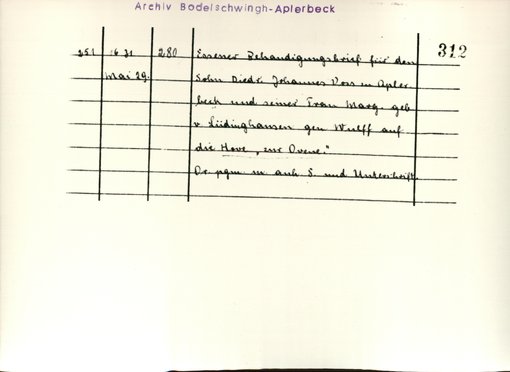 Archiv Bodelschwingh-Aplerbeck
312
251 1631 280 Essener Behandigungsbrief für den
Mai 29. Sohn Diedr. Johannes Voss in Apler
beck und seiner Frau Marg. geb
v Lüdinghausen gen Wulff auf
die Hove „zur Ovene."
Or. pgm m anh S. und Unterschrift.